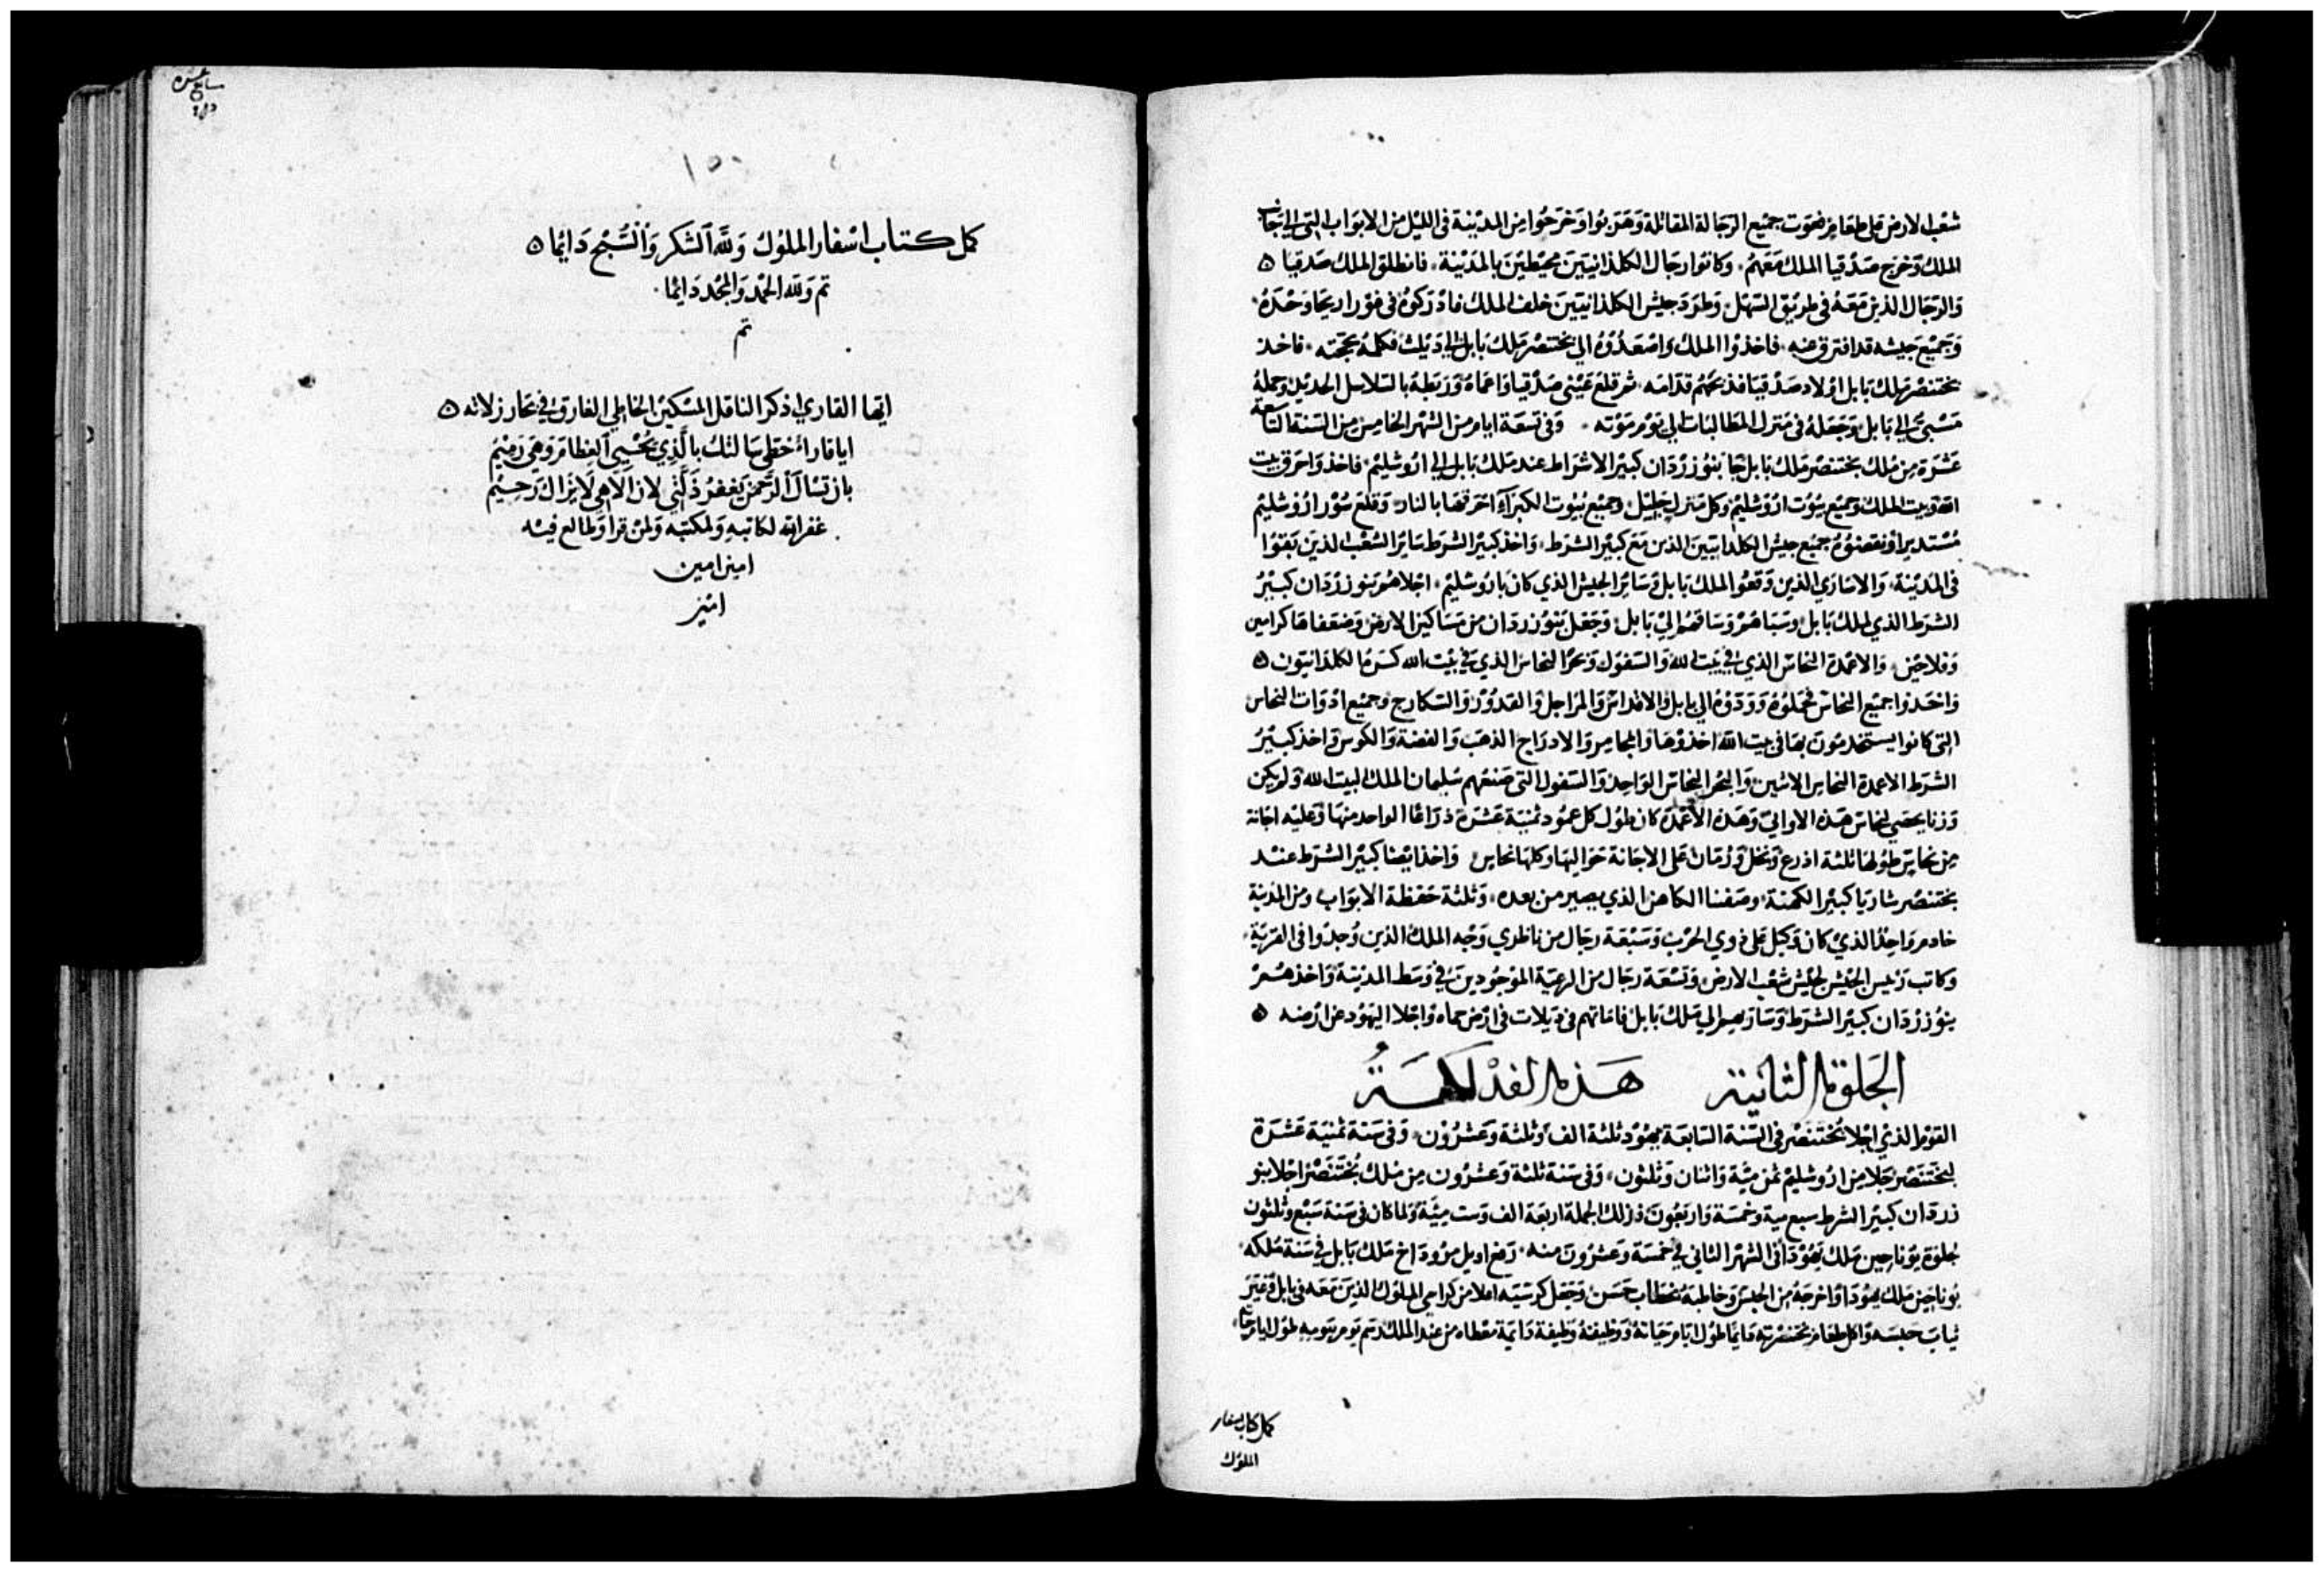 شعب الارض قل طعامهم فهوت جميع الرجالة المقاتلة وهربوا وخرجوا من المدينة في الليل من الابواب التي الي بجانب
الملك وخرج صدقيا الملك معهم وكانوا رجال الكلدانيين محيطين بالمدينة فانطلق الملك صدقيا
والرجال الذين معه في طريق السهل وطرد جيش الكلدانيين خلف الملك فادركوه في غور اريحا وحده
وجميع جيشه قد افترق عنه فاخذوا الملك واصعدوه الي بختنصر ملك بابل الي ديلث فكلمه بحجته فاخذ
بختنصر ملك بابل اولاد صدقيا فذبحهم قدامه ثم قلع عيني صدقيا واعماه وربطه بالسلاسل الحديد وحمله
مسبيا الي بابل وجعله في منزل المطالبات الي يوم موته وفي تسعة ايام من الشهر الخامس من السنة التاسعة
عشرة من ملك بختنصر ملك بابل جا بنوزردان كبير الاشراط عند ملك بابل الي اروشليم فاخذ واحرق بيت
الله وبيت الملك وجميع بيوت اروشليم وكل منزل جليل وجميع بيوت الكبراء احرقها بالنار وقلع سور اروشليم
مستديرا ونقضوه جميع جيش الكلدانيين الذين مع كبير الشرط واخذ كبير الشرط ساير الشعب الذين بقوا
في المدينة والاساري الذين وقعوا لملك بابل وساير الجيش الذي كان باروشليم اجلاهم بنوزردان كبير
الشرط الذي لملك بابل وسباهم وساقهم الي بابل وجعل بنوزردان من مساكين الارض وضعفاها كرامين
وفلاحين والاعمدة النحاس الذي في بيت الله والسفول وبحر النحاس الذي في بيت الله كسرها الكلدانيون
واخذوا جميع النحاس فحملوه وودوه الي بابل والاقداس والمراجل والقدور والسكارج وجميع ادوات النحاس
التي كانوا يستخدمون بها في بيت الله اخذوها والمجامر والادراج الذهب والفضة والكوس واخذ كبير
الشرط الاعمدة النحاس الاثنين والبحر النحاس الواحد والسفول التي صنعهم سليمان الملك لبيت الله ولم يكن
وزنا يحصي لنحاس هذه الاواني وهذه الاعمدة كان طول كل عمود ثمنية عشرة ذراعا الواحد منها وعليه اجانة
من نحاس طولها ثلثة اذرع ونخل ورمان علي الاجانة حواليها وكلها نحاس واخذ ايضا كبير الشرط عند
بختنصر شاريا كبير الكهنة وصفنيا الكاهن الذي يصير من بعده وثلثة حفظة الابواب ومن المدينة
خادم واحد الذي كان وكيل علي ذوي الحرب وسبعة رجال من ناظري وجه الملك الذين وجدوا في القرية
وكاتب رئيس الجيش لجيش شعب الارض وتسعة رجال من الرعية الموجودين في وسط المدينة واخذهم
بنوزردان كبير الشرط وسار بهم الي ملك بابل فاماتهم في ديلات في ارض حماه واجلا اليهود عن ارضه
الجلوة الثانية هذه الفذلكة
القوم الذي اجلا بختنصر في السنة السابعة يهود ثلثة الف وثلثة وعشرون وفي سنة ثمنية عشرة
لبختنصر جلا من اروشليم ثمن مية واثنان وثلثون وفي سنة ثلثة وعشرون من ملك بختنصر اجلا بنو
زردان كبير الشرط سبع مية وخمسة واربعون فذلك الجملة اربعة الف وست مية ولما كان في سنة سبع وثلثون
لجلوة يوناحين ملك يهودا في الشهر الثاني في خمسة وعشرون منه رفع اويل مروداخ ملك بابل في سنة ملكه
يوناحين ملك يهودا واخرجه من الحبس وخاطبه بخطاب حسن وجعل كرسيه اعلا من كراسي الملوك الذين معه في بابل وغير
ثياب حبسه واكل طعام بحضرته دايما طول ايام حياته ووظيفه وظيفة دايمة معطاه من عند الملك رسم يوم بيومه طول ايام حياته
كمل كتاب اسفار
الملوك
سابع عشره
١٥٠
كمل كتاب اسفار الملوك ولله الشكر والتسبيح دايما
تم ولله الحمد والمجد دايما
تم
ايها القاري اذكر الناقل المسكين الخاطي الغارق في بحار زلاته
ايا قاراء خطي سالتك بالذي يحيي العظام وهي رميم
بان تسال الرحمن يغفر زلتي لان الاهي لا يزال رحيم
غفر الله لكاتبه ولمكتبه ولمن قرا وطالع فيه
امين امين
امين